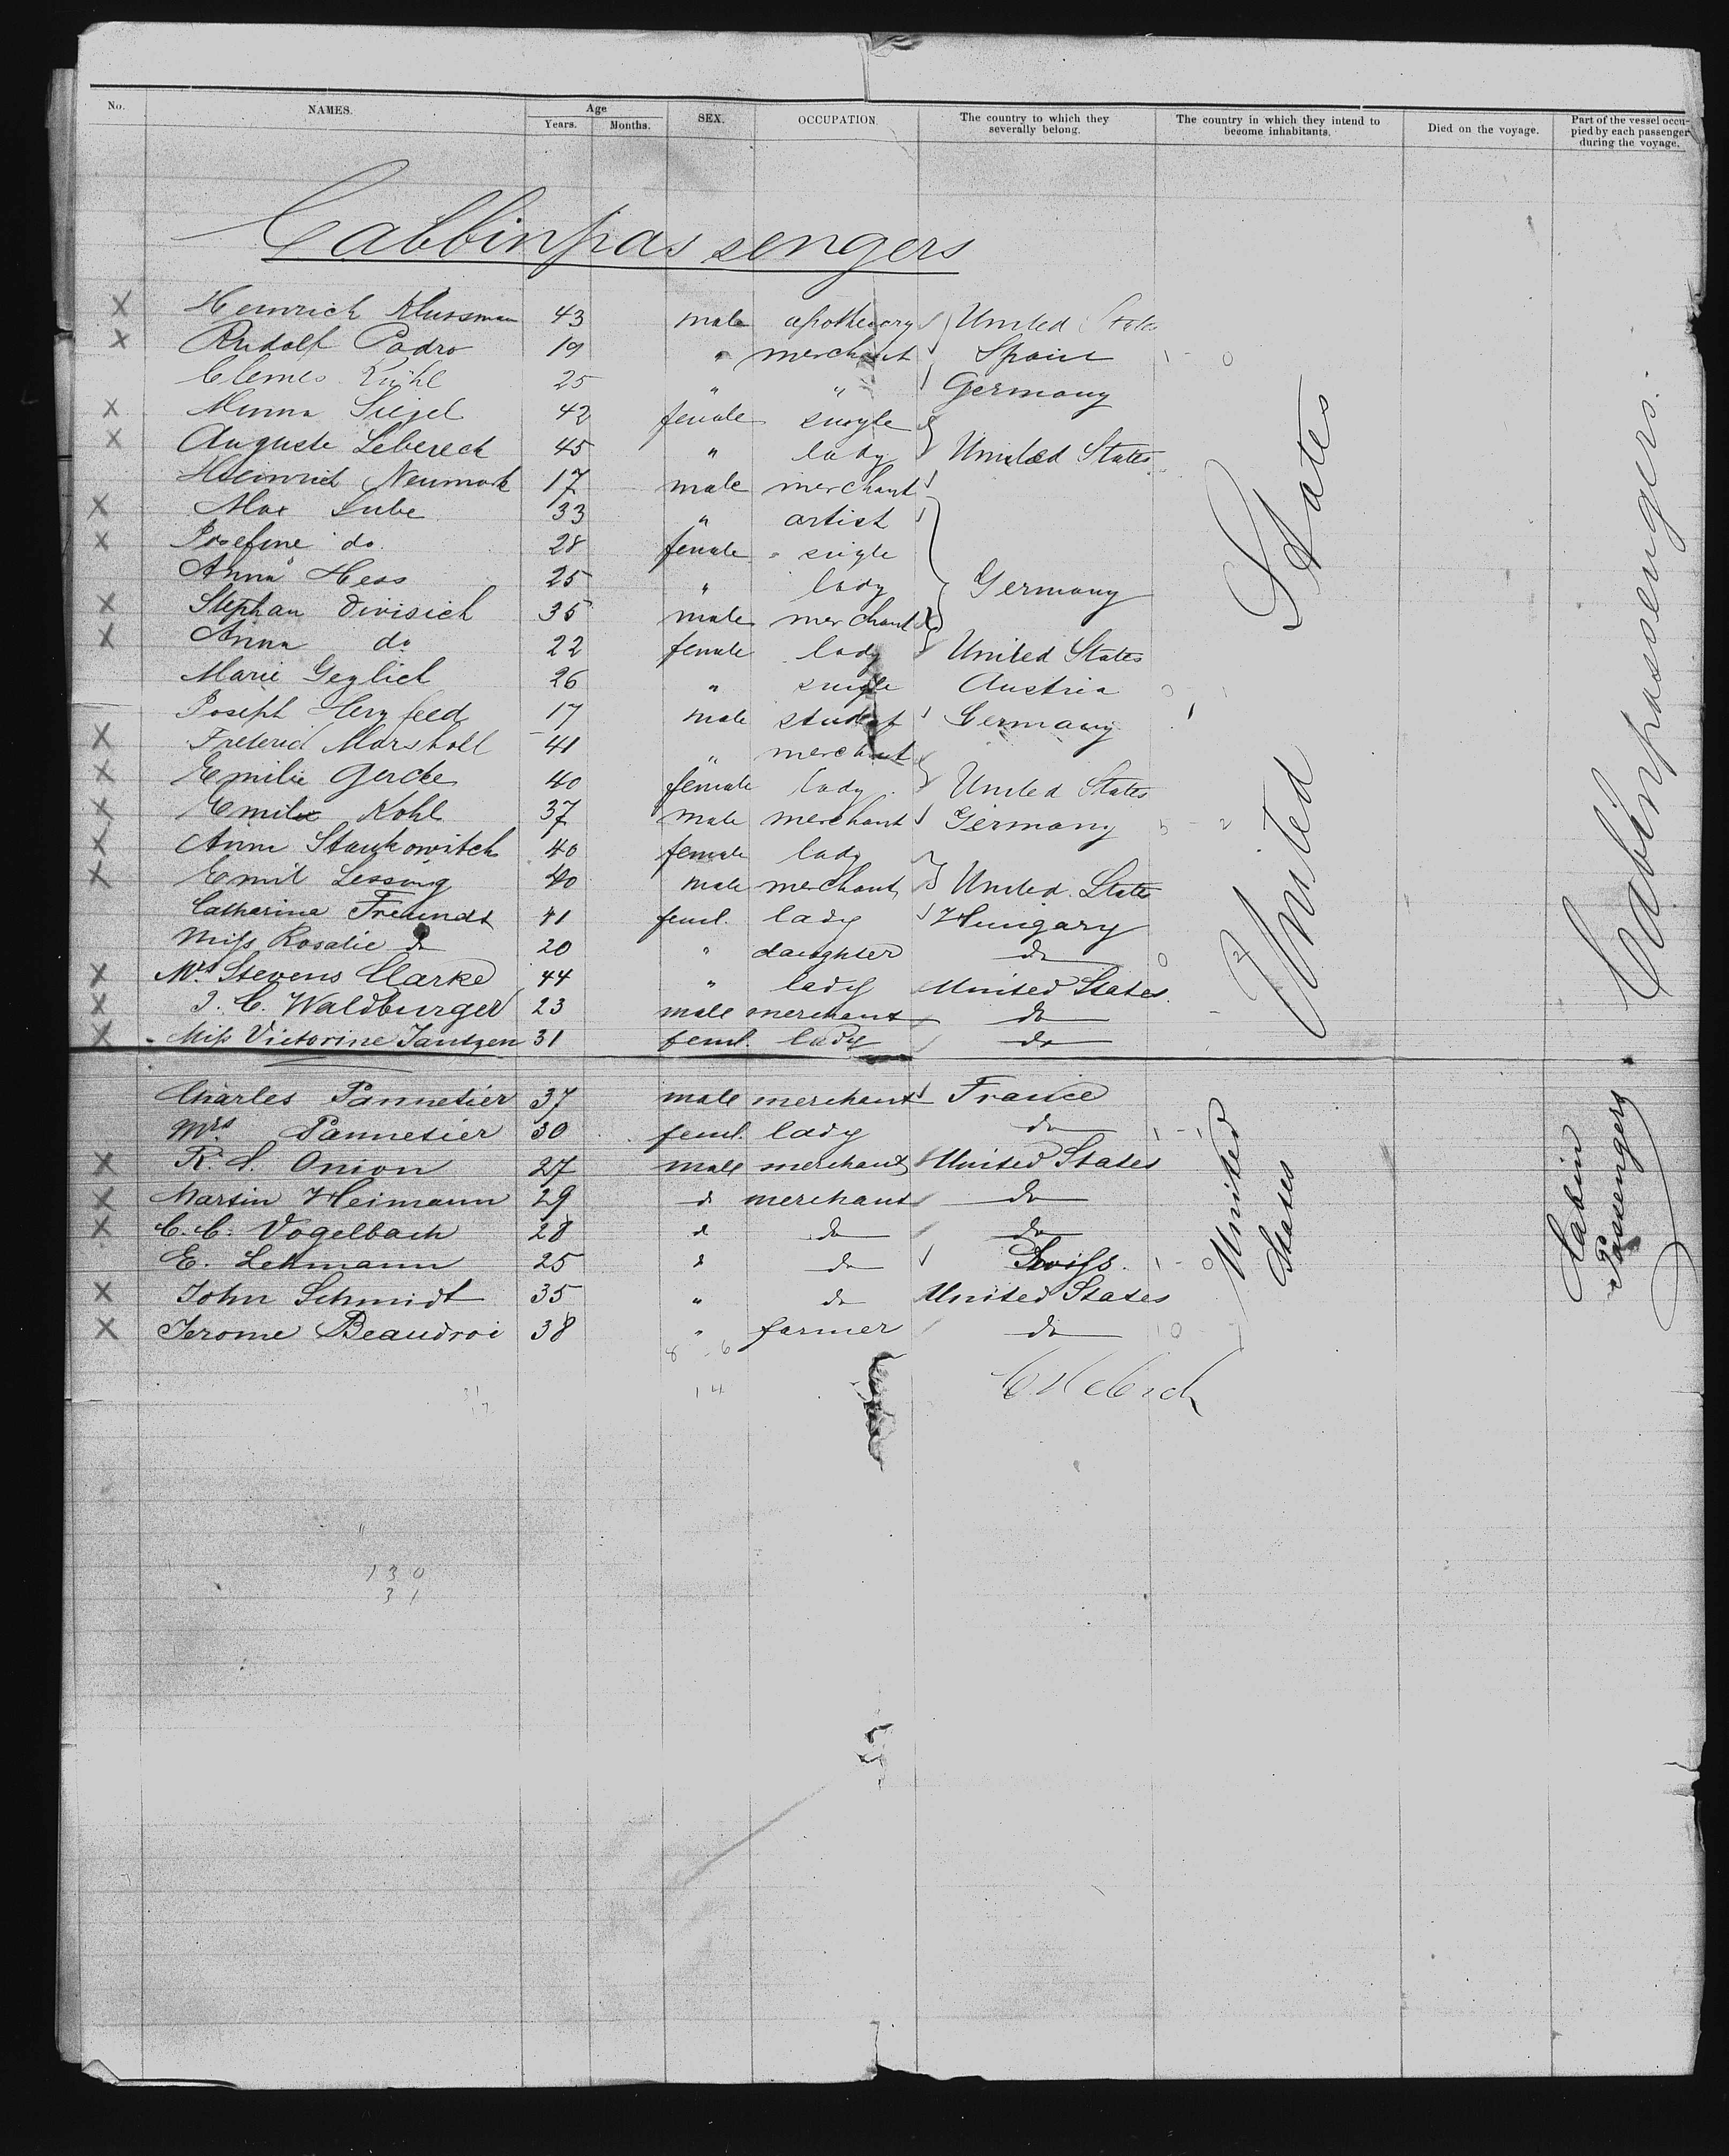 No. NAMES. Age Years. Months. SEX. OCCUPATION. The country to which they severally belong. The country in which they intend to become inhabitants. Died on the voyage. Part of the vessel occupied by each passenger during the voyage.
Cabbinpassengers
X Heinrich Klussman 43 male apothecary United States
X Rudolf Padro 19 " merchant Spain 1 - 0
Clemes Kühl 25 " " Germany
X Minna Siegel 42 female single
X Auguste Leberecht 45 " lady United States
Heinrich Neumark 17 male merchant
X Max Lube 33 " artist
X Josefine do. 28 female single
Anna Hess 25 " lady Germany
X Stephan Divisich 35 male merchant
X Anna do 22 female lady United States
Marie Geglich 26 " single Austria
Joseph Herzfeed 17 male student Germany
X Frederich Marshall 41 " merchant
X Emilie Gercke 40 female lady United States
X Emile Kohl 37 male merchant Germany
X Anni Stankowitch 40 female lady
X Emil Lessing 40 male merchant United States
Catharina Freundt 41 feml. lady Hungary
Miss Rosalie do 20 " daughter do
X Mrs Stevens Clarke 44 " lady United States.
X J. C. Waldburger 23 male merchant do
X Miss Victorine Jantzen 31 feml. lady do
United States
Cabinpassengers.
Charles Pannetier 37 male merchant France
Mrs Pannetier 30 feml. lady do 1 - 1
X R. S. Onion 27 male merchant United States
X Martin Heimann 29 d merchant do
X C. C. Vogelbach 28 d do do
E. Lehmann 25 d do Swiss. 1 - 0
X John Schmidt 35 " do United States
X Jerome Beaudroi 38 " farmer do
United States
Cabin Passengers
8 6
14
130
31